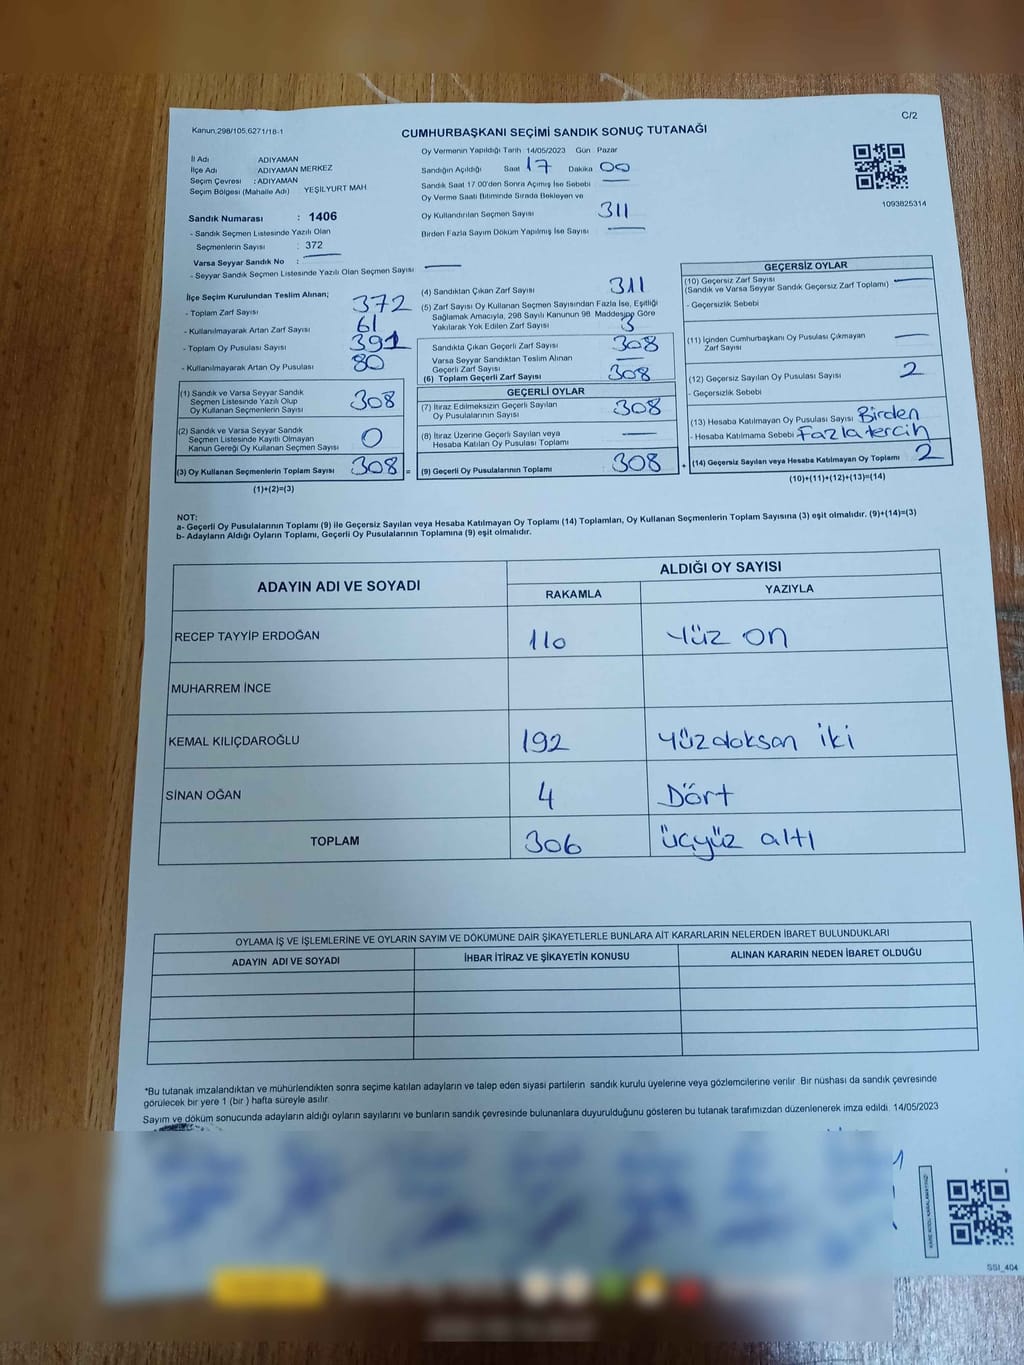 C/2
Kanun,298/105,6271/18-1
CUMHURBAŞKANI SEÇİMİ SANDIK SONUÇ TUTANAĞI
İl Adı ADIYAMAN
İlçe Adı ADIYAMAN MERKEZ
Seçim Çevresi : ADIYAMAN
Seçim Bölgesi (Mahalle Adı) YEŞİLYURT MAH
Sandık Numarası : 1406
- Sandık Seçmen Listesinde Yazılı Olan
Seçmenlerin Sayısı : 372
Varsa Seyyar Sandık No :
- Seyyar Sandık Seçmen Listesinde Yazılı Olan Seçmen Sayısı
Oy Vermenin Yapıldığı Tarih 14/05/2023 Gün Pazar
Sandığın Açıldığı Saat 17 Dakika 00
Sandık Saat 17.00'den Sonra Açımış İse Sebebi
Oy Verme Saati Bitiminde Sırada Bekleyen ve
Oy Kullandırılan Seçmen Sayısı 311
Birden Fazla Sayım Döküm Yapılmış İse Sayısı
1093825314
İlçe Seçim Kurulundan Teslim Alınan;
- Toplam Zarf Sayısı 372
- Kullanılmayarak Artan Zarf Sayısı 61
- Toplam Oy Pusulası Sayısı 391
- Kullanılmayarak Artan Oy Pusulası 80
(1) Sandık ve Varsa Seyyar Sandık
Seçmen Listesinde Yazılı Olup
Oy Kullanan Seçmenlerin Sayısı 308
(2) Sandık ve Varsa Seyyar Sandık
Seçmen Listesinde Kayıtlı Olmayan
Kanun Gereği Oy Kullanan Seçmen Sayısı 0
(3) Oy Kullanan Seçmenlerin Toplam Sayısı 308 =
(1)+(2)=(3)
(4) Sandıktan Çıkan Zarf Sayısı 311
(5) Zarf Sayısı Oy Kullanan Seçmen Sayısından Fazla İse, Eşitliği
Sağlamak Amacıyla, 298 Sayılı Kanunun 98. Maddesine Göre
Yakılarak Yok Edilen Zarf Sayısı 3
Sandıkta Çıkan Geçerli Zarf Sayısı 308
Varsa Seyyar Sandıktan Teslim Alınan
Geçerli Zarf Sayısı
(6) Toplam Geçerli Zarf Sayısı 308
GEÇERLİ OYLAR
(7) İtiraz Edilmeksizin Geçerli Sayılan
Oy Pusulalarının Sayısı 308
(8) İtiraz Üzerine Geçerli Sayılan veya
Hesaba Katılan Oy Pusulası Toplamı
(9) Geçerli Oy Pusulalarının Toplamı 308 +
GEÇERSİZ OYLAR
(10) Geçersiz Zarf Sayısı
(Sandık ve Varsa Seyyar Sandık Geçersiz Zarf Toplamı)
- Geçersizlik Sebebi
(11) İçinden Cumhurbaşkanı Oy Pusulası Çıkmayan
Zarf Sayısı
(12) Geçersiz Sayılan Oy Pusulası Sayısı 2
- Geçersizlik Sebebi
(13) Hesaba Katılmayan Oy Pusulası Sayısı Birden
- Hesaba Katılmama Sebebi Fazla tercih
(14) Geçersiz Sayılan veya Hesaba Katılmayan Oy Toplamı 2
(10)+(11)+(12)+(13)=(14)
NOT:
a- Geçerli Oy Pusulalarının Toplamı (9) ile Geçersiz Sayılan veya Hesaba Katılmayan Oy Toplamı (14) Toplamları, Oy Kullanan Seçmenlerin Toplam Sayısına (3) eşit olmalıdır. (9)+(14)=(3)
b- Adayların Aldığı Oyların Toplamı, Geçerli Oy Pusulalarının Toplamına (9) eşit olmalıdır.
ADAYIN ADI VE SOYADI ALDIĞI OY SAYISI
RAKAMLA YAZIYLA
RECEP TAYYİP ERDOĞAN 110 Yüz on
MUHARREM İNCE
KEMAL KILIÇDAROĞLU 192 Yüzdoksan iki
SİNAN OĞAN 4 Dört
TOPLAM 306 üçyüz altı
OYLAMA İŞ VE İŞLEMLERİNE VE OYLARIN SAYIM VE DÖKÜMÜNE DAİR ŞİKAYETLERLE BUNLARA AİT KARARLARIN NELERDEN İBARET BULUNDUKLARI
ADAYIN ADI VE SOYADI İHBAR İTİRAZ VE ŞİKAYETİN KONUSU ALINAN KARARIN NEDEN İBARET OLDUĞU
*Bu tutanak imzalandıktan ve mühürlendikten sonra seçime katılan adayların ve talep eden siyasi partilerin sandık kurulu üyelerine veya gözlemcilerine verilir. Bir nüshası da sandık çevresinde
görülecek bir yere 1 (bir) hafta süreyle asılır.
Sayım ve döküm sonucunda adayların aldığı oyların sayılarını ve bunların sandık çevresinde bulunanlara duyurulduğunu gösteren bu tutanak tarafımızdan düzenlenerek imza edildi. 14/05/2023
SSI_404